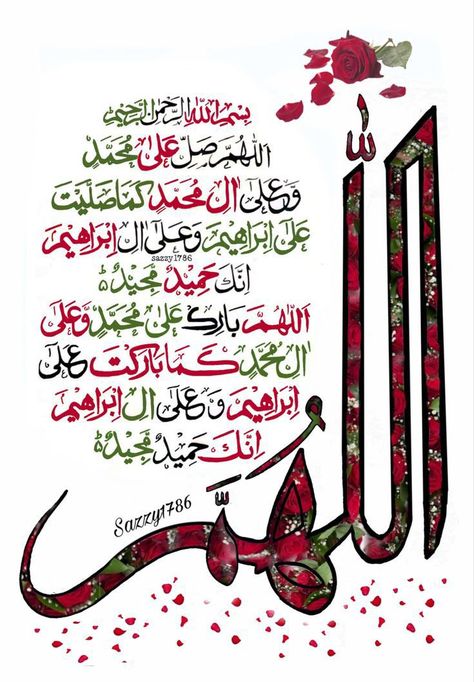 بِسْمِ اللهِ الرَّحْمٰنِ الرَّحِيْمِ
اَللّٰهُمَّ صَلِّ عَلٰى مُحَمَّدٍ
وَّعَلٰى اٰلِ مُحَمَّدٍ كَمَا صَلَّيْتَ
عَلٰى اِبْرَاهِيْمَ وَعَلٰى اٰلِ اِبْرَاهِيْمَ
sazzy1786
اِنَّكَ حَمِيْدٌ مَّجِيْدٌ ۵
اَللّٰهُمَّ بَارِكْ عَلٰى مُحَمَّدٍ وَّعَلٰى
اٰلِ مُحَمَّدٍ كَمَا بَارَكْتَ عَلٰى
اِبْرَاهِيْمَ وَعَلٰى اٰلِ اِبْرَاهِيْمَ
اِنَّكَ حَمِيْدٌ مَّجِيْدٌ ۵
اللّٰهُمَّ
Sazzy1786